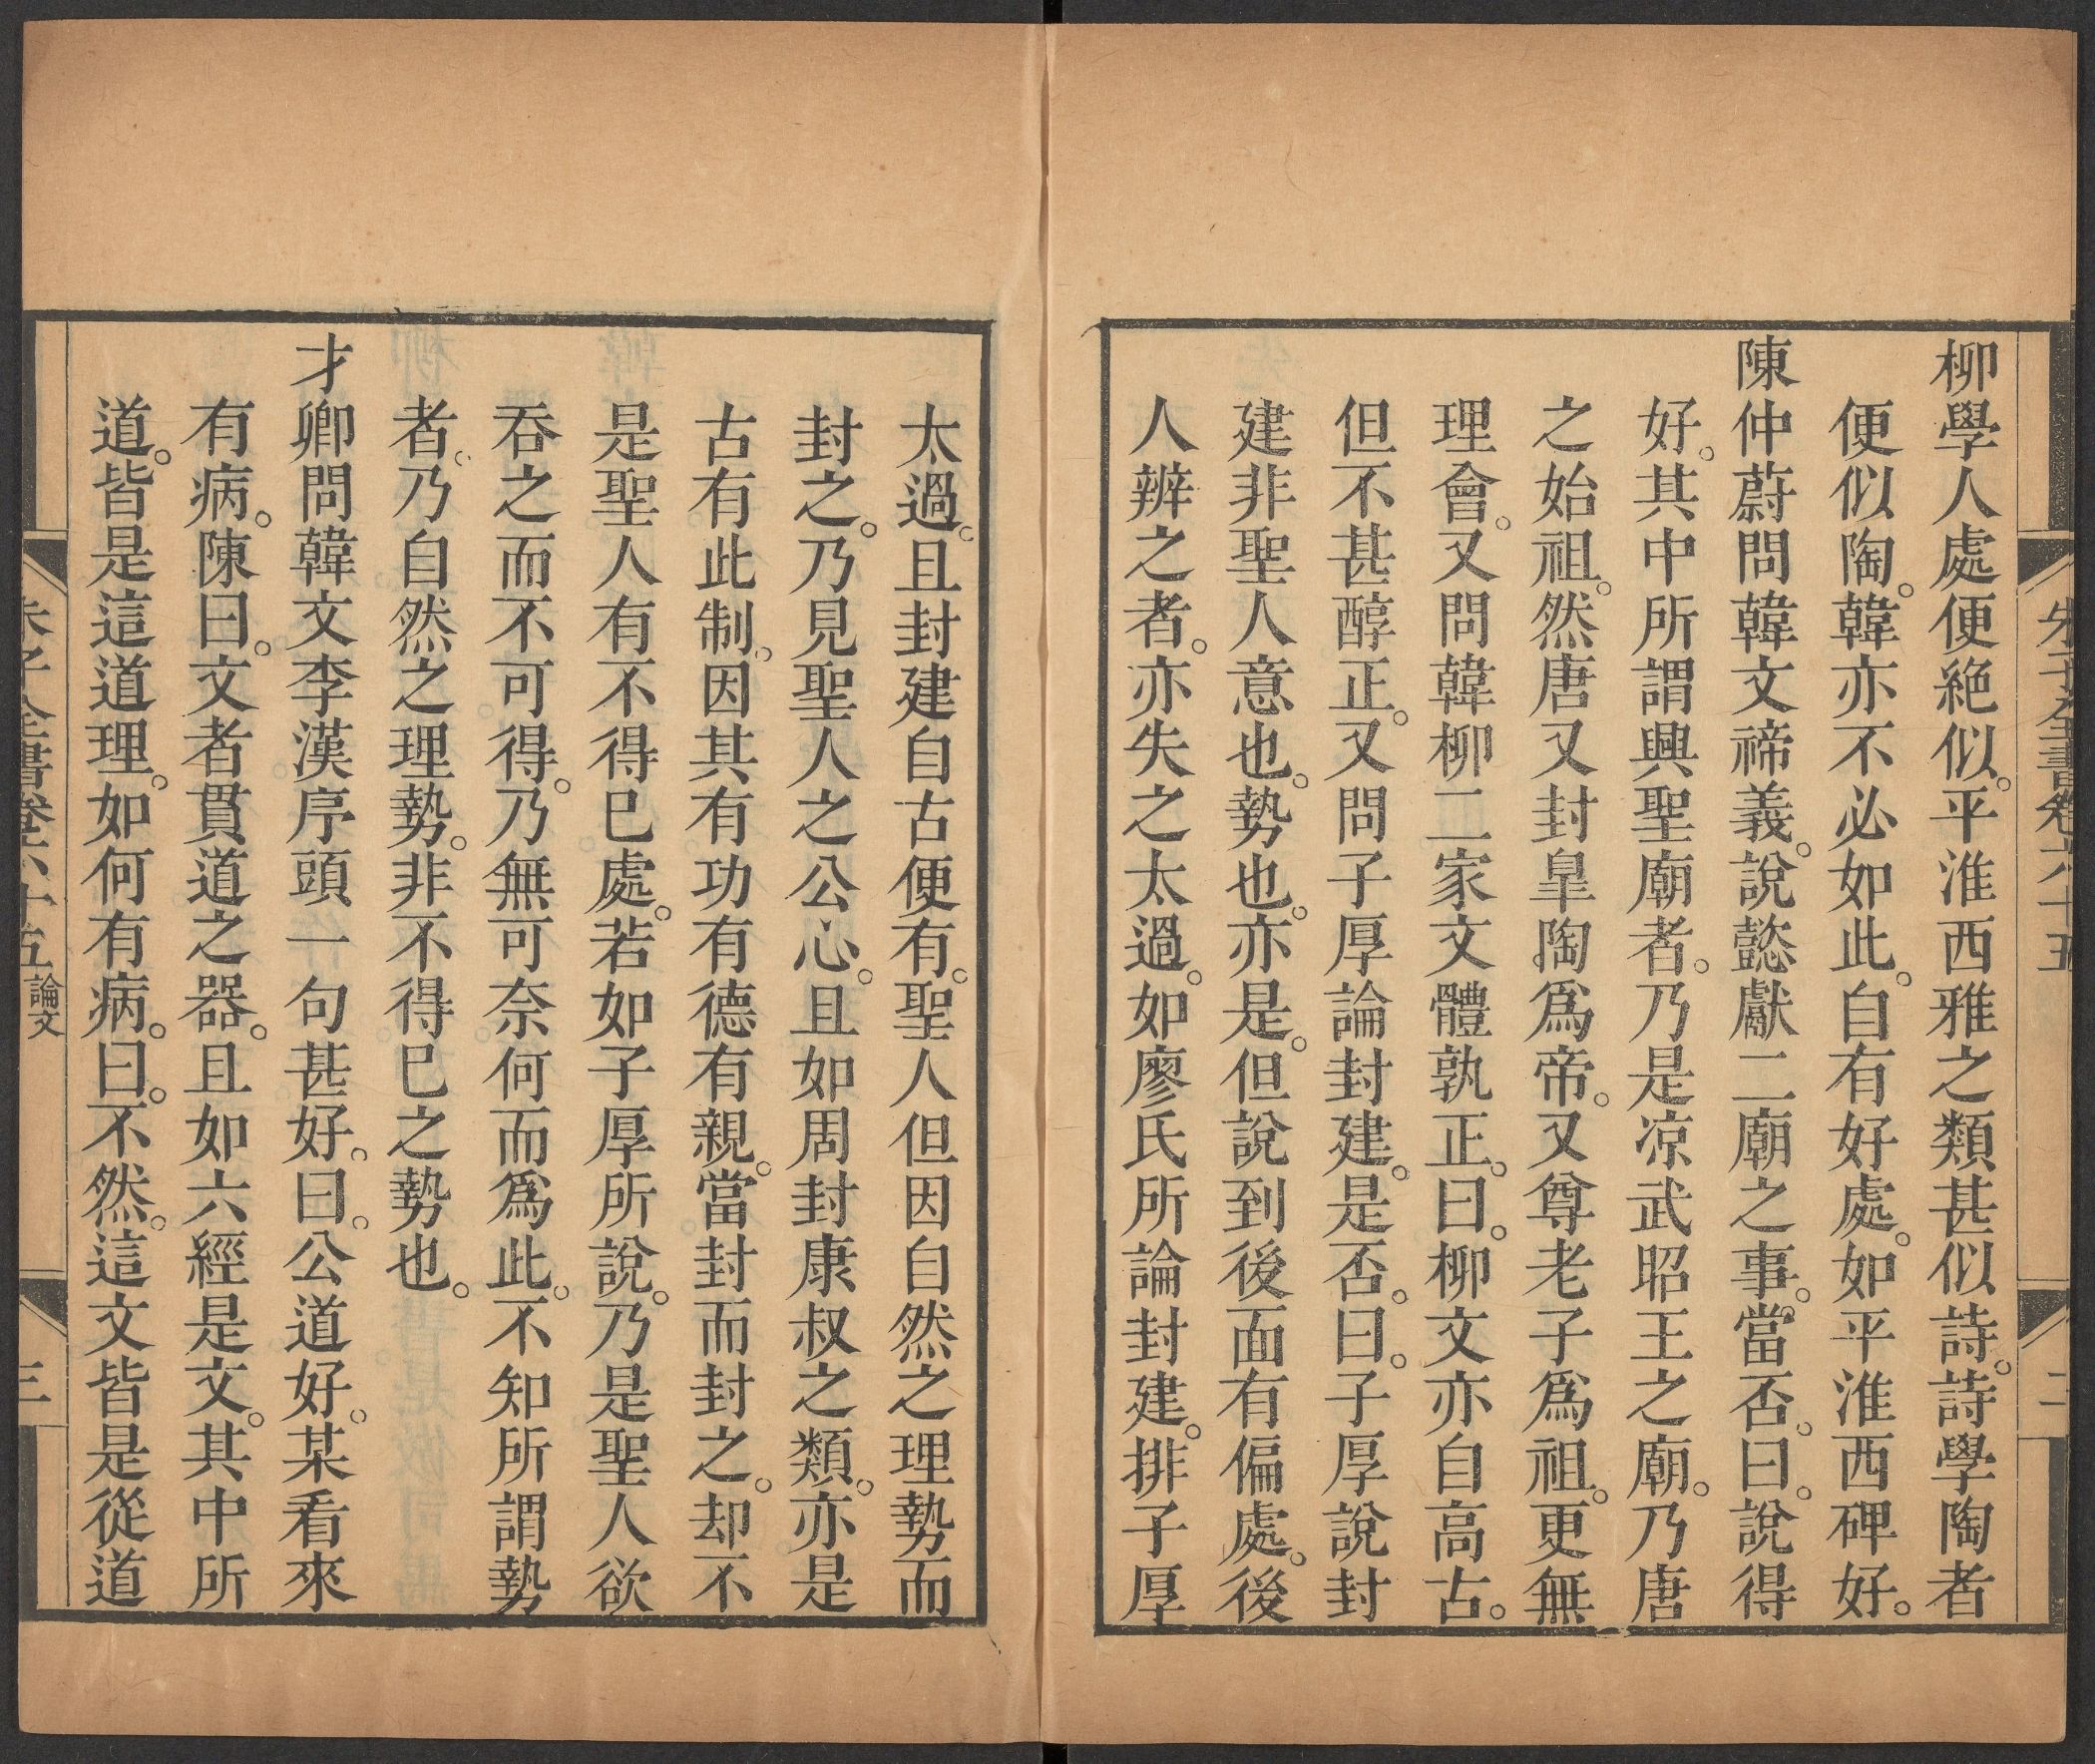 朱子全書卷六十五
二
柳學人處便絶似。平淮西雅之類甚似詩。詩學陶者
便似陶。韓亦不必如此。自有好處。如平淮西碑好。
陳仲蔚問韓文禘義。說懿獻二廟之事。當否。曰。說得
好。其中所謂興聖廟者。乃是凉武昭王之廟。乃唐
之始祖。然唐又封皐陶爲帝。又尊老子爲祖。更無
理會。又問韓柳二家文體孰正。曰。柳文亦自高古。
但不甚醇正。又問子厚論封建。是否。曰。子厚說封
建非聖人意也。勢也。亦是。但說到後面有偏處。後
人辨之者。亦失之太過。如廖氏所論封建。排子厚
太過。且封建自古便有。聖人但因自然之理勢而
封之。乃見聖人之公心。且如周封康叔之類。亦是
古有此制。因其有功有德有親。當封而封之。却不
是聖人有不得已處。若如子厚所說。乃是聖人欲
吞之而不可得。乃無可奈何而爲此。不知所謂勢
者。乃自然之理勢。非不得已之勢也。
才卿問韓文李漢序頭一句甚好。曰。公道好。某看來
有病。陳曰。文者貫道之器。且如六經是文。其中所
道。皆是這道理。如何有病。曰。不然。這文皆是從道
朱子全書卷六十五 論文
三